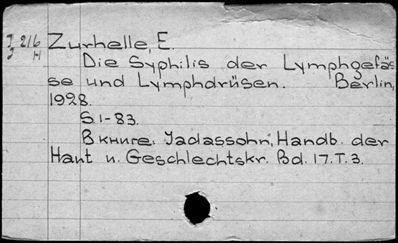 J 216 Zurhelle, E.
J H
Die Syphilis der Lymphgefäs
se und Lymphdrüsen. Berlin,
1928.
S.1-83.
В книге: Jadassohn, Handb. der
Haut u. Geschlechtskr. Bd. 17. T. 3.